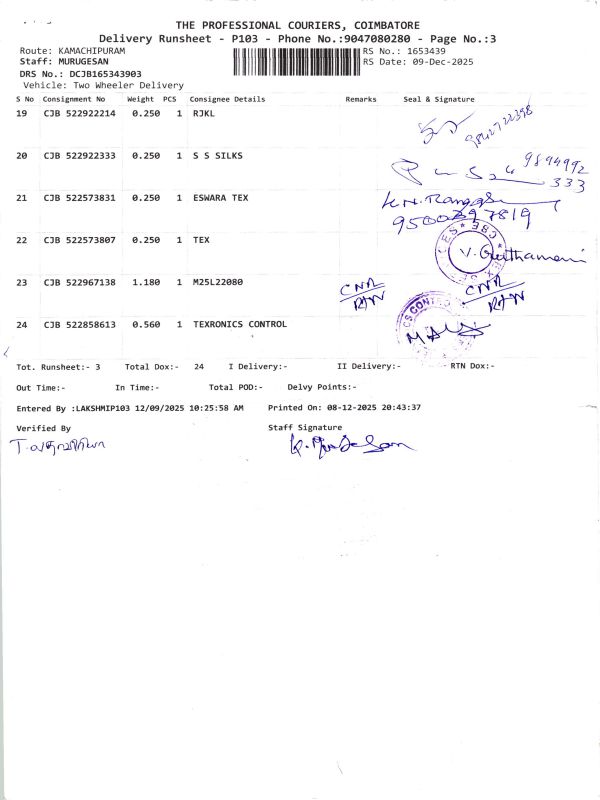 THE PROFESSIONAL COURIERS, COIMBATORE
Delivery Runsheet - P103 - Phone No.:9047080280 - Page No.:3
Route: KAMACHIPURAM RS No.: 1653439
Staff: MURUGESAN RS Date: 09-Dec-2025
DRS No.: DCJB165343903
Vehicle: Two Wheeler Delivery
S No Consignment No Weight PCS Consignee Details Remarks Seal & Signature
19 CJB 522922214 0.250 1 RJKL
9842722398
20 CJB 522922333 0.250 1 S S SILKS
9894992
333
21 CJB 522573831 0.250 1 ESWARA TEX
9500297819
22 CJB 522573807 0.250 1 TEX
CBE
23 CJB 522967138 1.180 1 M25L22080
24 CJB 522858613 0.560 1 TEXRONICS CONTROL
Tot. Runsheet:- 3 Total Dox:- 24 I Delivery:- II Delivery:- RTN Dox:-
Out Time:- In Time:- Total POD:- Delvy Points:-
Entered By :LAKSHMIP103 12/09/2025 10:25:58 AM Printed On: 08-12-2025 20:43:37
Verified By Staff Signature